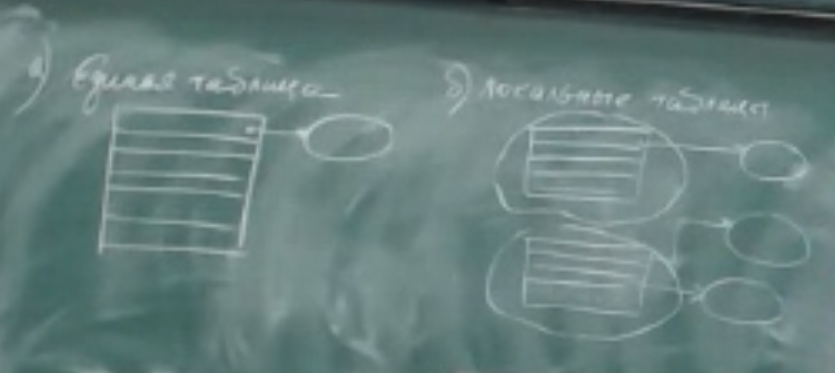 а) Единая таблица
б) локальные таблицы